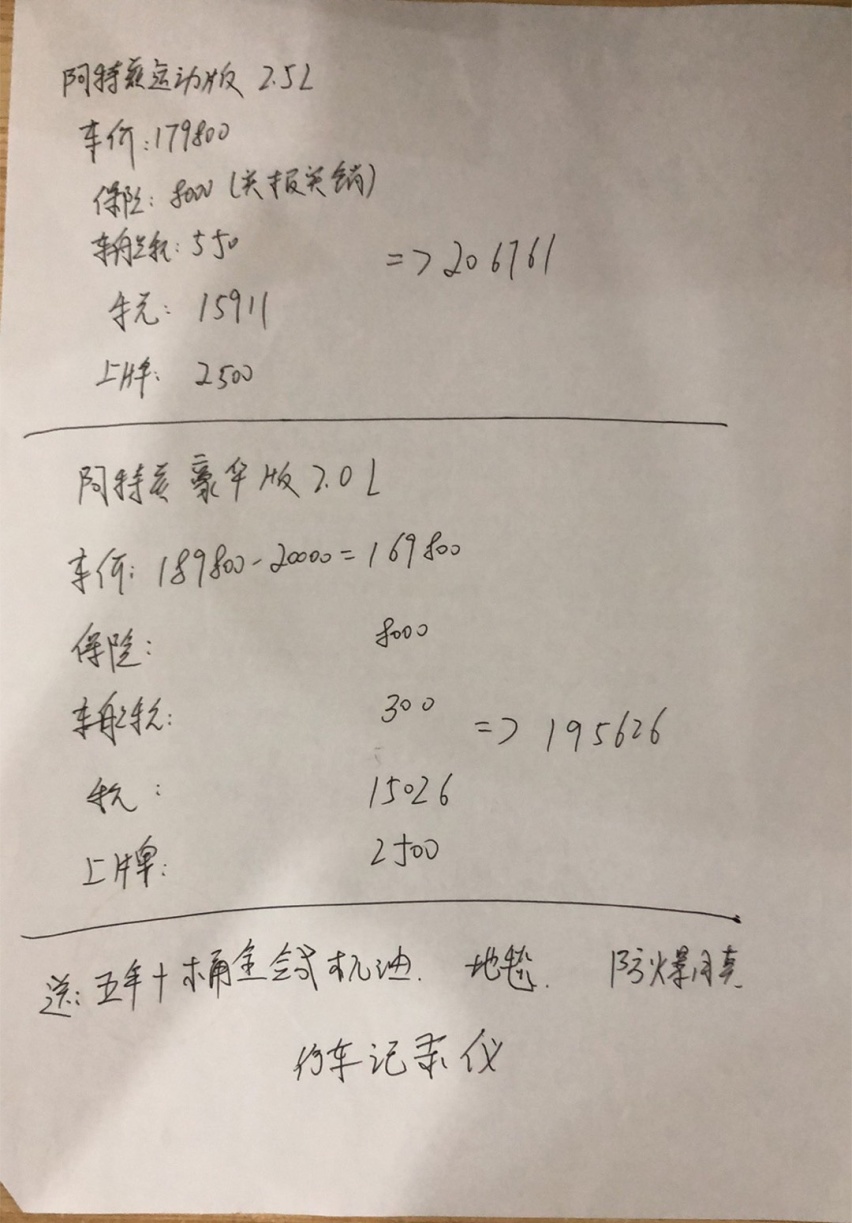 阿特兹运动版 2.5L
车价:179800
保险: 8000 (实报实销)
车船税: 550
=> 206761
税: 15911
上牌: 2500
阿特兹豪华版 2.0L
车价: 189800-20000=169800
保险: 8000
车船税: 300
=> 195626
税: 15026
上牌: 2500
送: 五年十桶全合成机油. 地毯. 防爆膜
行车记录仪